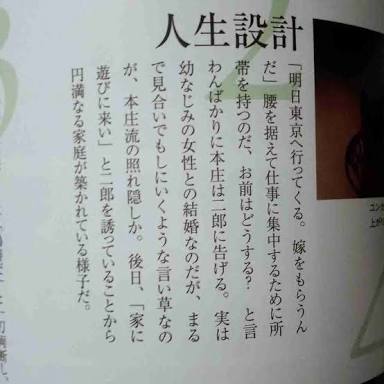 人生設計
「明日東京へ行ってくる。嫁をもらうん
だ」腰を据えて仕事に集中するために所
帯を持つのだ、お前はどうする? と言
わんばかりに本庄は二郎に告げる。実は
幼なじみの女性との結婚なのだが、まる
で見合いでもしにいくような言い草なの
が、本庄流の照れ隠しか。後日、「家に
遊びに来い」と二郎を誘っていることから
円満なる家庭が築かれている様子だ。